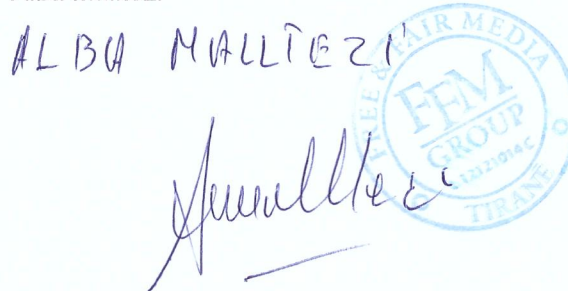 ALBA MALLTEZI
FREE & FAIR MEDIA
FFM
GROUP
TIRANË